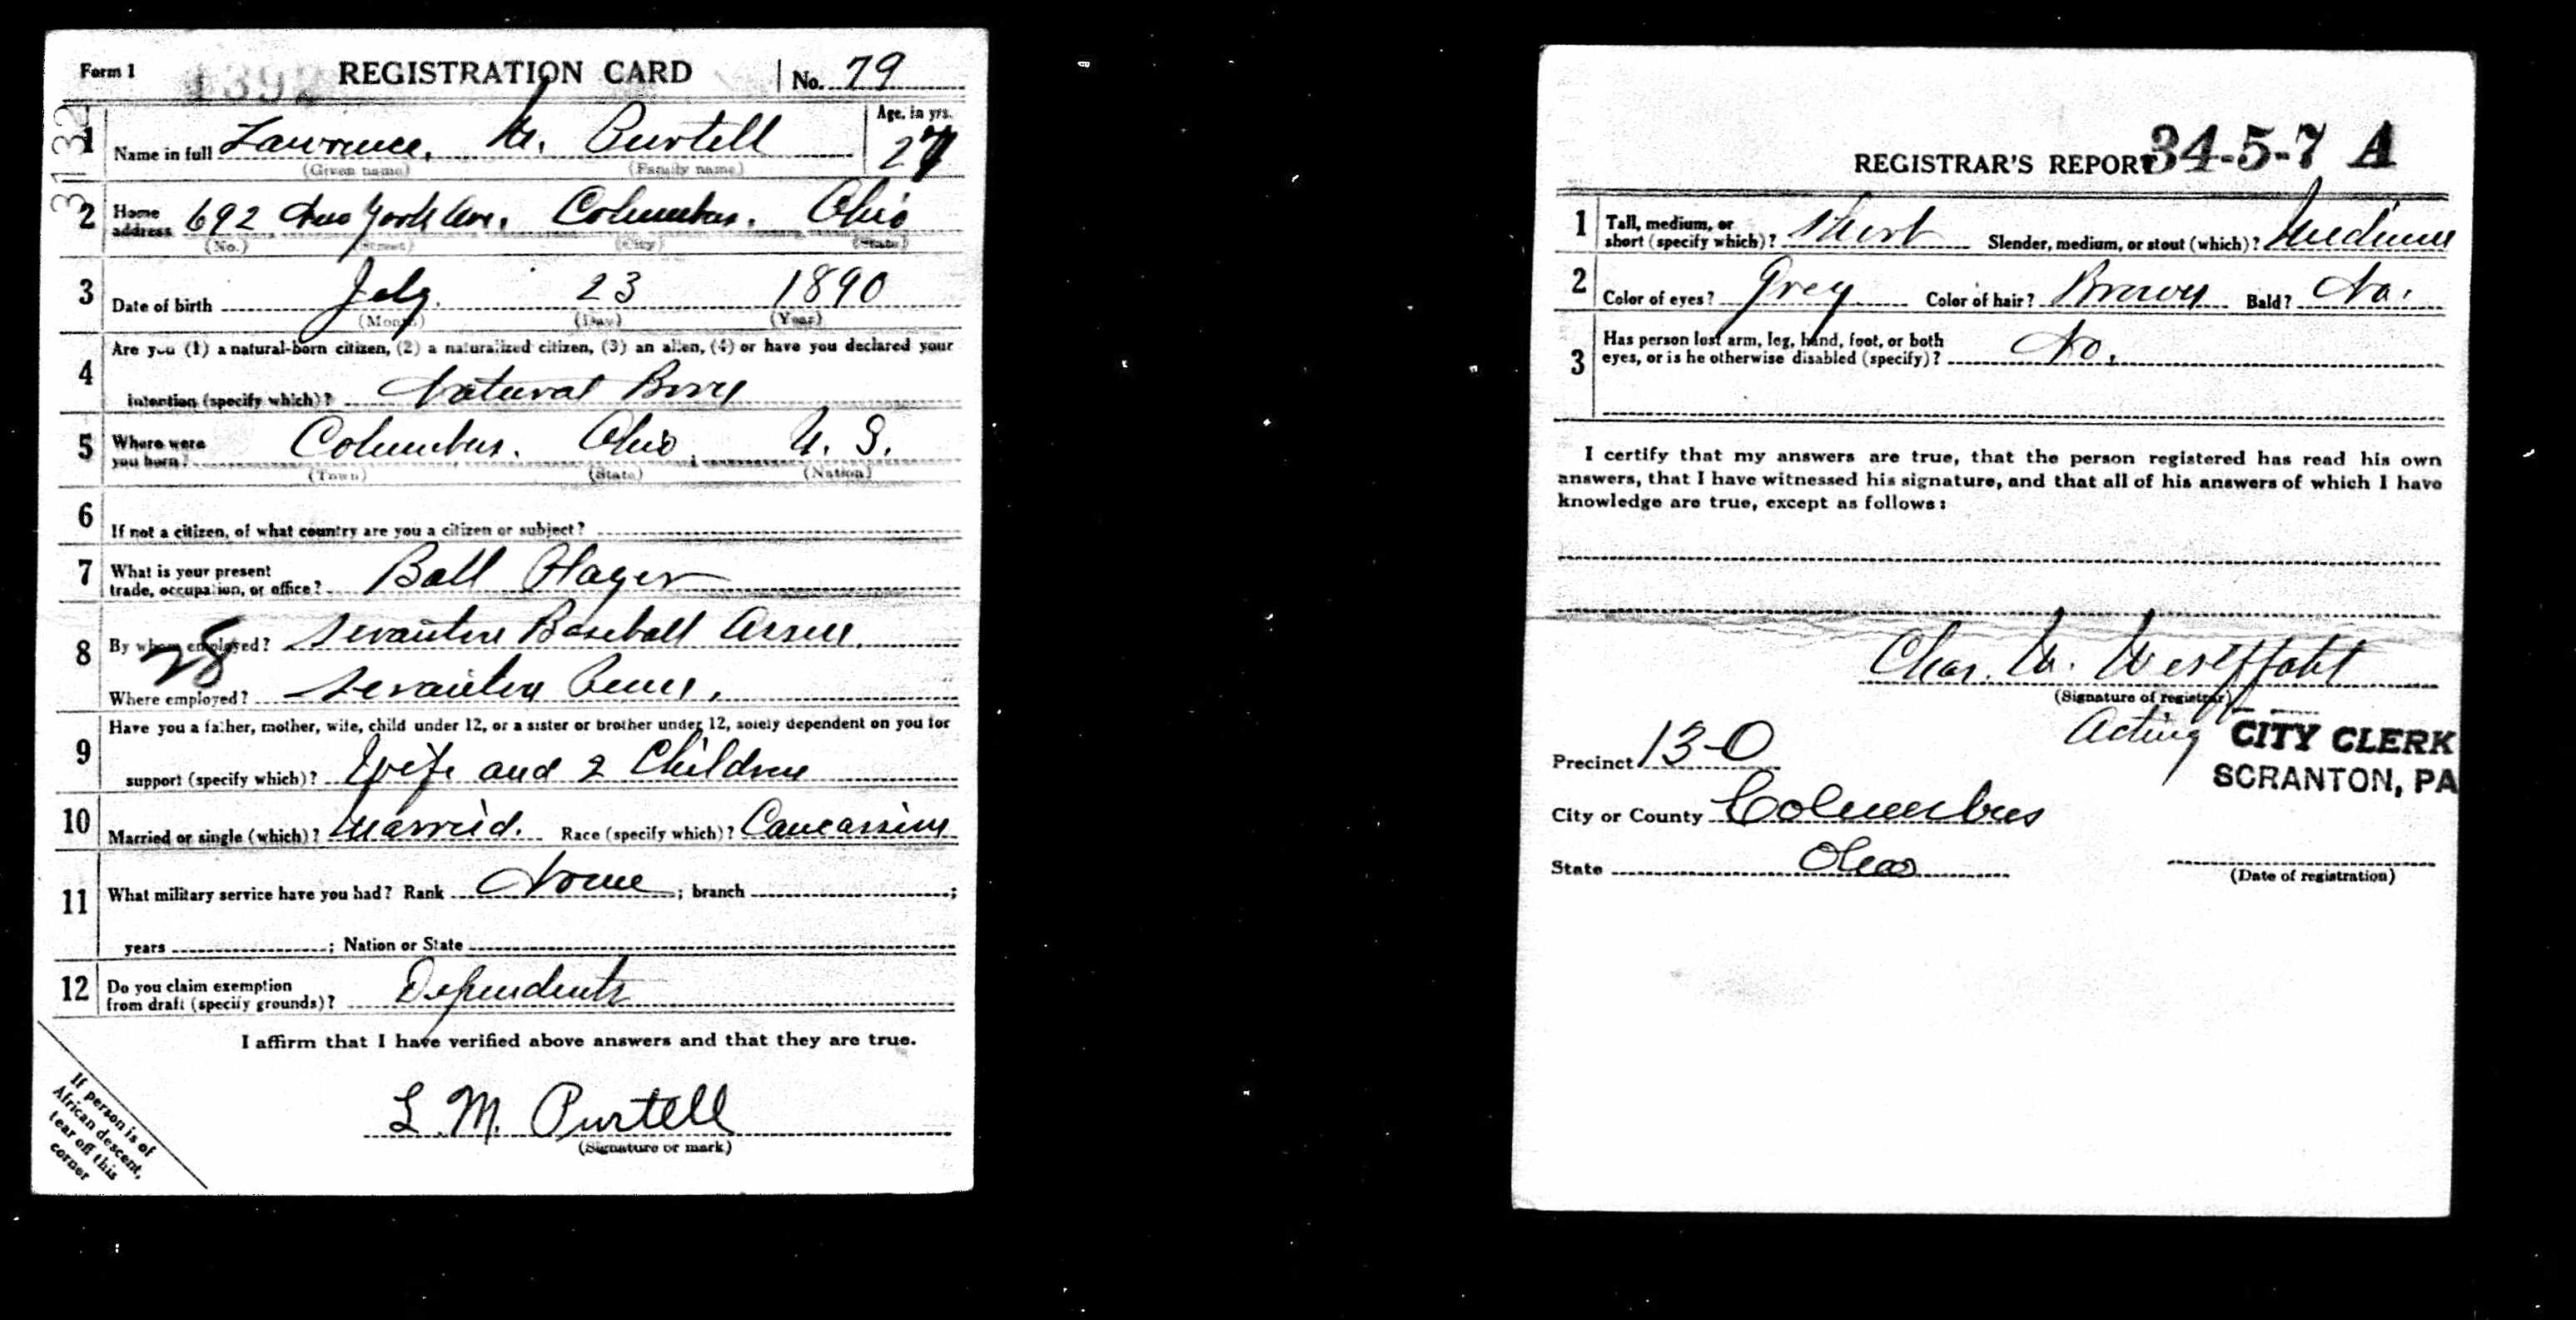 Form 1 1392 REGISTRATION CARD No. 79
31 32
1 Name in full Lawrence, M. Purtell Age, in yrs. 27
(Given name) (Family name)
2 Home address 692 New York Ave. Columbus. Ohio
(No.) (Street) (City) (State)
3 Date of birth July. 23 1890
(Month) (Day) (Year)
4 Are you (1) a natural-born citizen, (2) a naturalized citizen, (3) an alien, (4) or have you declared your
intention (specify which)? Natural Born
5 Where were you born? Columbus. Ohio. U. S.
(Town) (State) (Nation)
6 If not a citizen, of what country are you a citizen or subject?
7 What is your present
trade, occupation, or office? Ball Player
8 By whom employed? Scranton Baseball Assn.
28
Where employed? Scranton Penn.
9 Have you a father, mother, wife, child under 12, or a sister or brother under 12, solely dependent on you for
support (specify which)? Wife and 2 Children
10 Married or single (which)? Married. Race (specify which)? Caucassian
11 What military service have you had? Rank None ; branch ;
years ; Nation or State
12 Do you claim exemption
from draft (specify grounds)? Dependents
I affirm that I have verified above answers and that they are true.
L. M. Purtell
(Signature or mark)
If person is of
African descent,
tear off this
corner
REGISTRAR'S REPORT 34-5-7 A
1 Tall, medium, or
short (specify which)? Short Slender, medium, or stout (which)? Medium
2 Color of eyes? Grey Color of hair? Brown Bald? No.
3 Has person lost arm, leg, hand, foot, or both
eyes, or is he otherwise disabled (specify)? No.
I certify that my answers are true, that the person registered has read his own
answers, that I have witnessed his signature, and that all of his answers of which I have
knowledge are true, except as follows:
Chas. W. Westpfahl
(Signature of registrar)
Acting CITY CLERK
SCRANTON, PA
Precinct 13-O
City or County Columbus
State Ohio
(Date of registration)